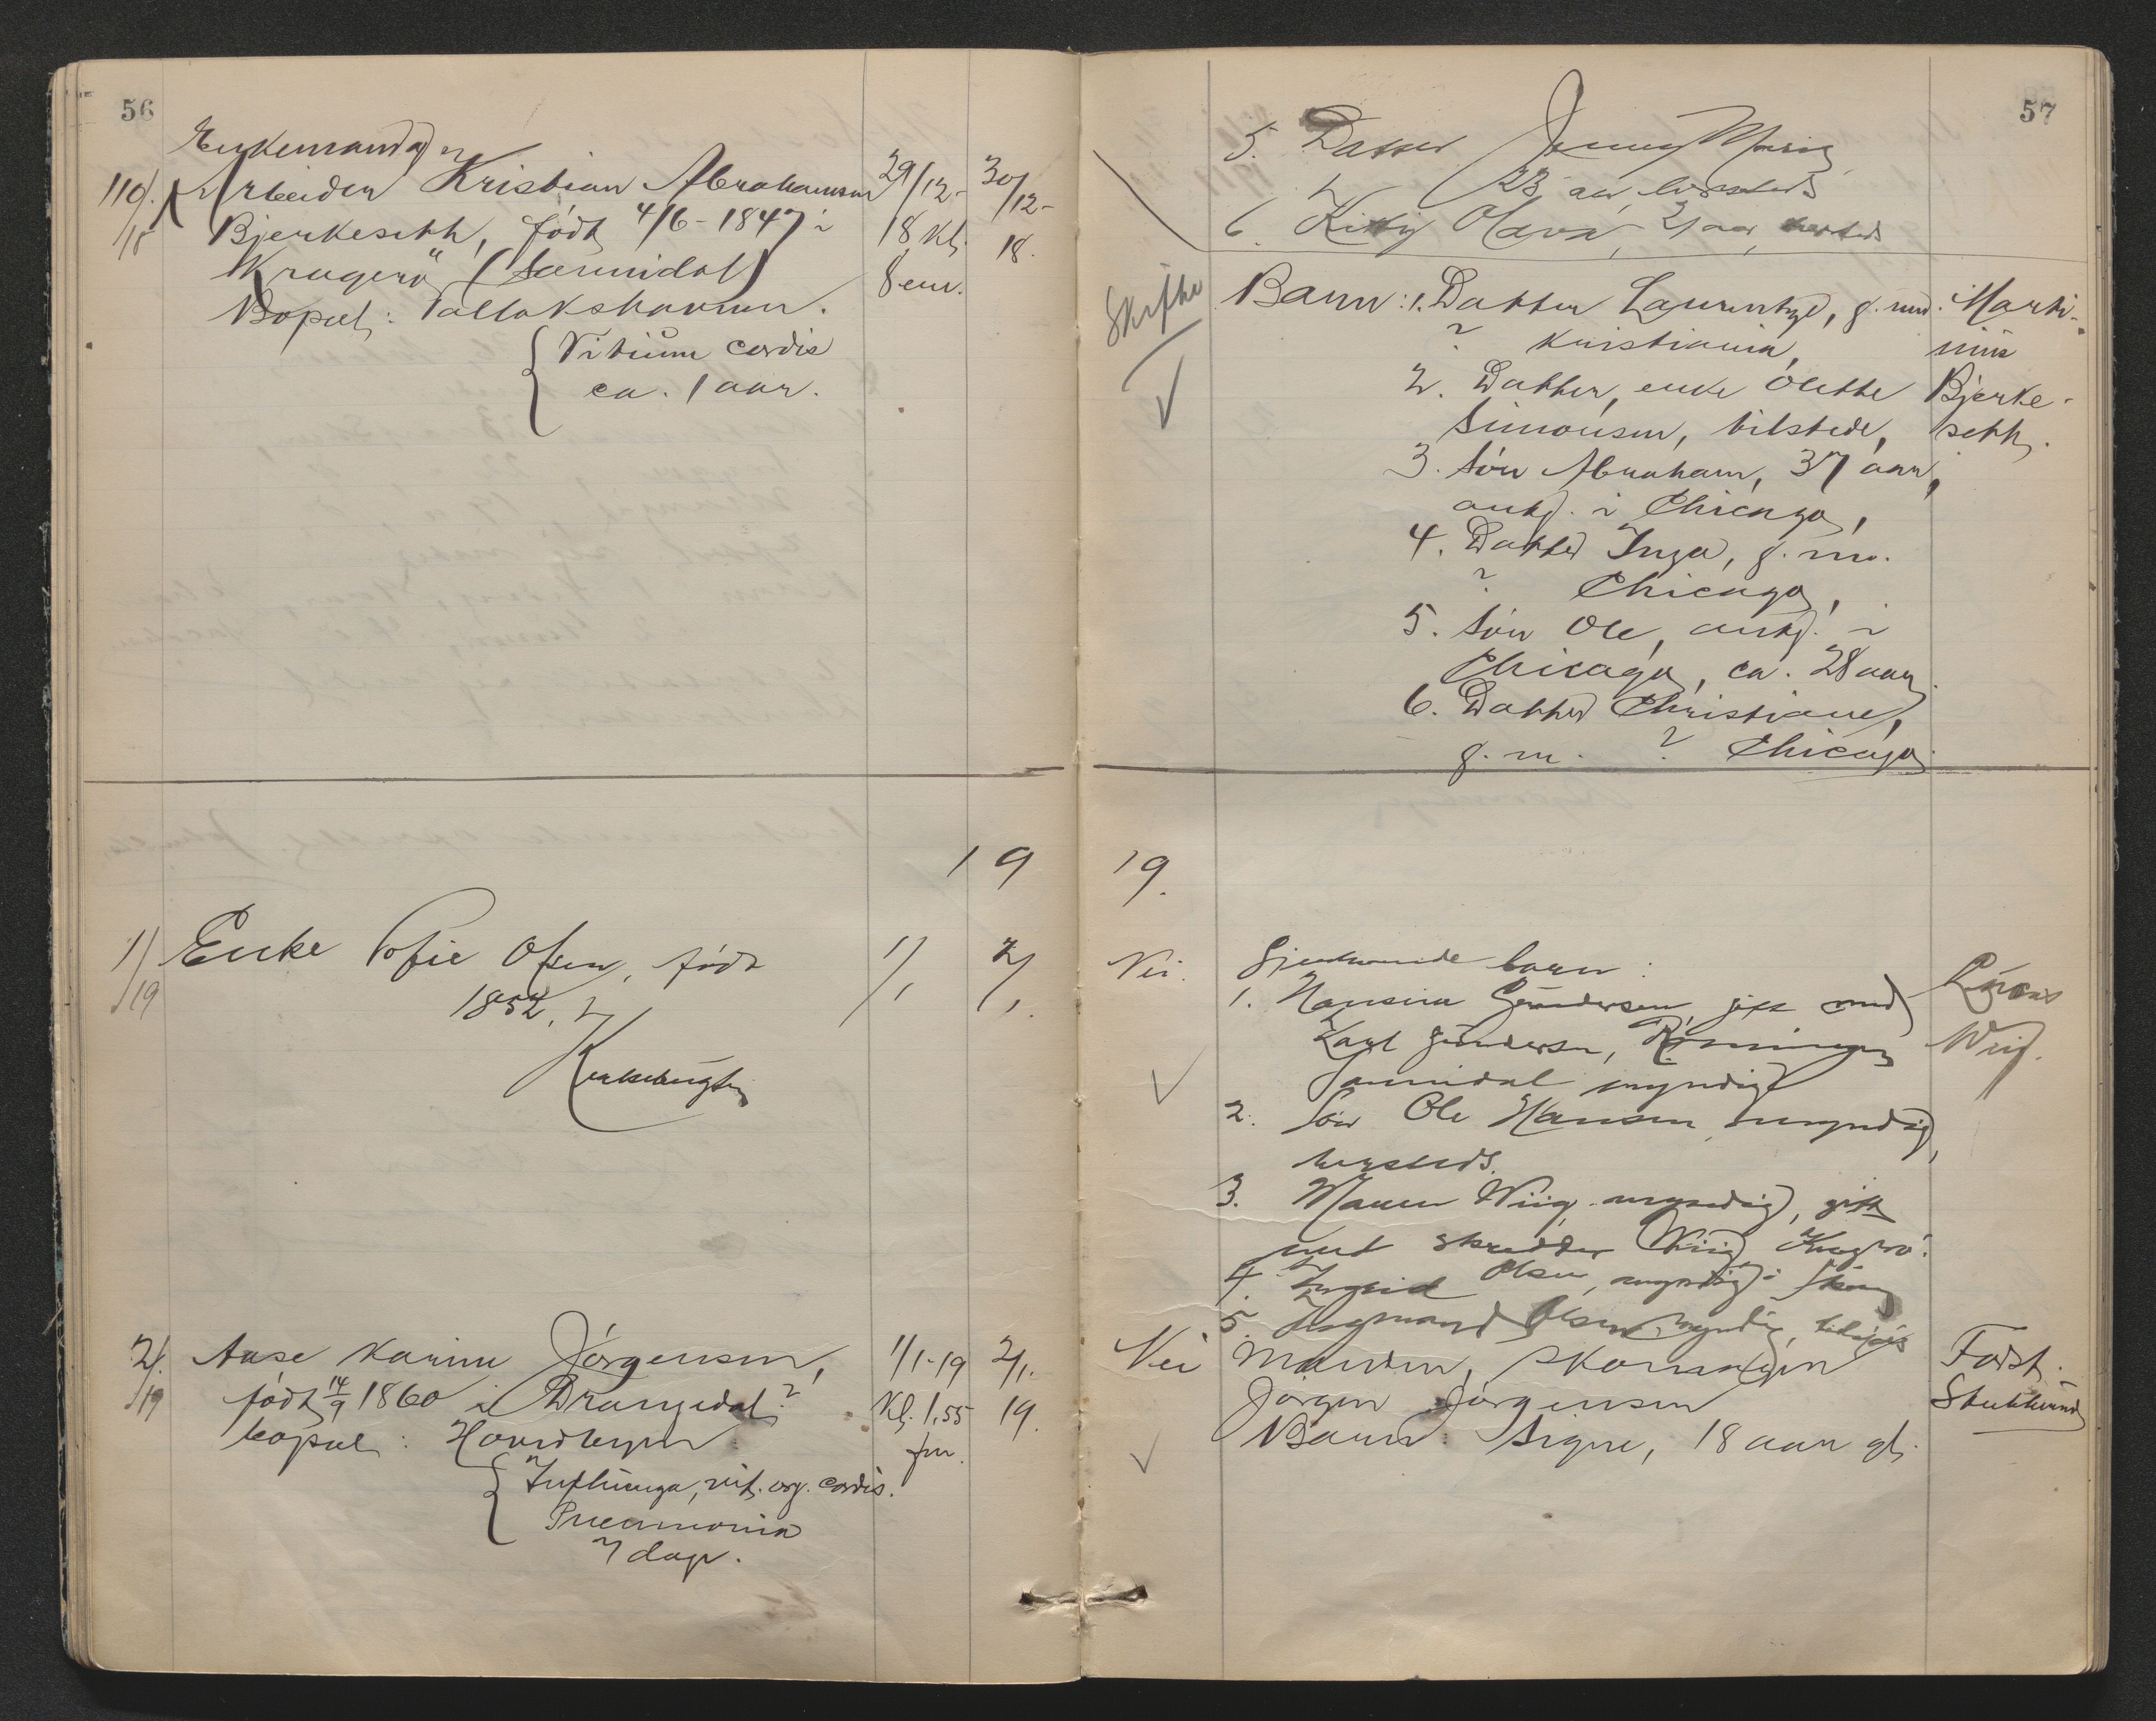 56
Enkemand og
110/18 Arbeider Kristian Abrahamsen 29/12- 30/12-
Bjerkeseth, født 4/6-1847 i 18 kl. 18.
Kragerø (Sannidal) 8 em.
Bopæl: Tallakshavnen.
{ Vitium cordis
ca. 1 aar.
19
1/19 Enke Sofie Olsen, født 1/1 2/1.
1852, i
2/19 Aase Karine Jörgensen, 1/1-19 2/1.
född 14/9 1860 i Drangedal? Kl. 1,55 19.
bopæl: fm.
{ Influenza, vit. org. cordis.
Pneumonia
7 dage.
57
5. Datter Jenny Marie
23 aar, hersteds
6. Kitty Olava, 21 aar, hersteds
Skifte Barn: 1. Datter Laurentze, g. med Marti-
? Kristiania, nius
2. Datter, enke Olette Bjerke-
Simonsen, tilstede, seth.
3. Sön Abraham, 37 aar,
antg. i Chicago,
4. Datter Inga, g. m.
? Chicago,
5. Sön Ole, antg. i
Chicago, ca. 28 aar.
6. Datter Christiane,
g. m. ? Chicago.
19.
Nei. Gjenlevende barn:
1. Hansine Gundersen, gift med
Karl Gundersen, Wiig.
Sannidal myndig
2. Sön Ole Hansen myndig,
hersteds.
3. Maren Wiig myndig, gift
med skredder Wiig, Kragerö.
4. Ingrid Olsen, myndig i
5. Olsen, myndig,
Nei Manden,
Jörgen Jörgensen
Barn: Signe, 18 aar gl.